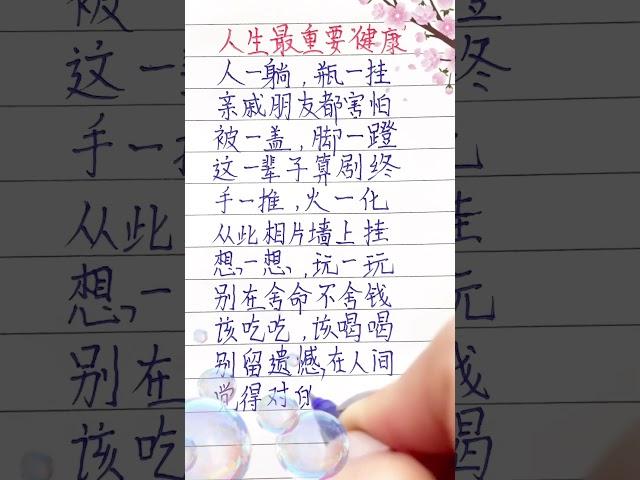 人生最重要健康
人一躺，瓶一挂
亲戚朋友都害怕
被一盖，脚一蹬
这一辈子算剧终
手一推，火一化
从此相片墙上挂
想一想，玩一玩
别在舍命不舍钱
该吃吃，该喝喝
别留遗憾，在人间
觉得对